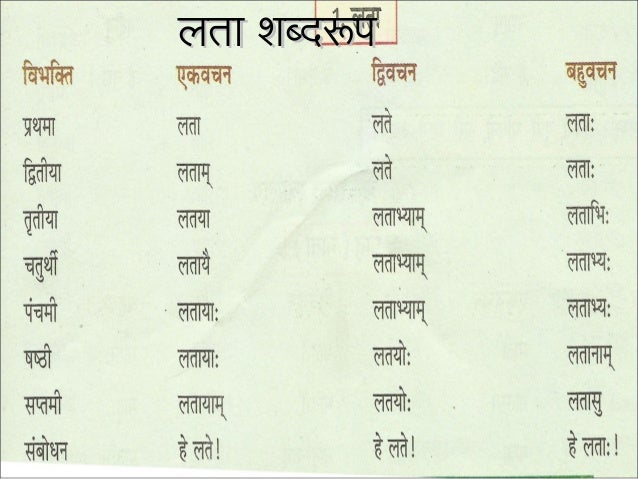 लता शब्दरूप
1. लता
विभक्ति एकवचन द्विवचन बहुवचन
प्रथमा लता लते लताः
द्वितीया लताम् लते लताः
तृतीया लतया लताभ्याम् लताभिः
चतुर्थी लतायै लताभ्याम् लताभ्यः
पंचमी लतायाः लताभ्याम् लताभ्यः
षष्ठी लतायाः लतयोः लतानाम्
सप्तमी लतायाम् लतयोः लतासु
संबोधन हे लते! हे लते! हे लताः!